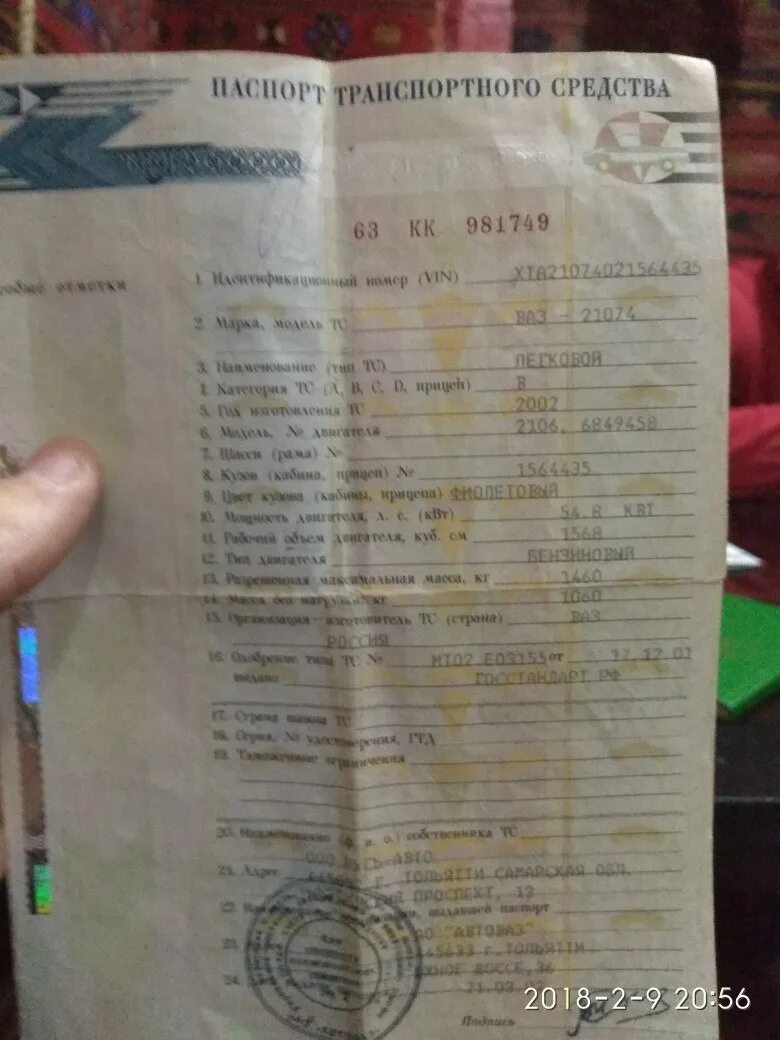 ПАСПОРТ ТРАНСПОРТНОГО СРЕДСТВА
63 КК 981749
отметки
1. Идентификационный номер (VIN) XTA21074021564435
2. Марка, модель ТС ВАЗ - 21074
3. Наименование (тип ТС) ЛЕГКОВОЙ
4. Категория ТС (A, B, C, D, прицеп) B
5. Год изготовления ТС 2002
6. Модель, № двигателя 2106, 6849458
7. Шасси (рама) №
8. Кузов (кабина, прицеп) № 1564435
9. Цвет кузова (кабины, прицепа) ФИОЛЕТОВЫЙ
10. Мощность двигателя, л. с. (кВт) 54.8 КВТ
11. Рабочий объем двигателя, куб. см 1568
12. Тип двигателя БЕНЗИНОВЫЙ
13. Разрешенная максимальная масса, кг 1460
14. Масса без нагрузки, кг 1060
15. Организация-изготовитель ТС (страна) ВАЗ
РОССИЯ
16. Одобрение типа ТС № МТ02 Е03155 от 17.12.01
выдано ГОССТАНДАРТ РФ
17. Страна вывоза ТС
18. Серия, № удостоверения, ГТД
19. Таможенные ограничения
20. Наименование (ф. и. о.) собственника ТС
ООО
21. Адрес Г. ТОЛЬЯТТИ САМАРСКАЯ ОБЛ.
ПРОСПЕКТ, 12
22. выдавшей паспорт
"АВТОВАЗ"
23. 445633 Г. ТОЛЬЯТТИ
ШОССЕ, 36
24.
2018-2-9 20:56
Подпись